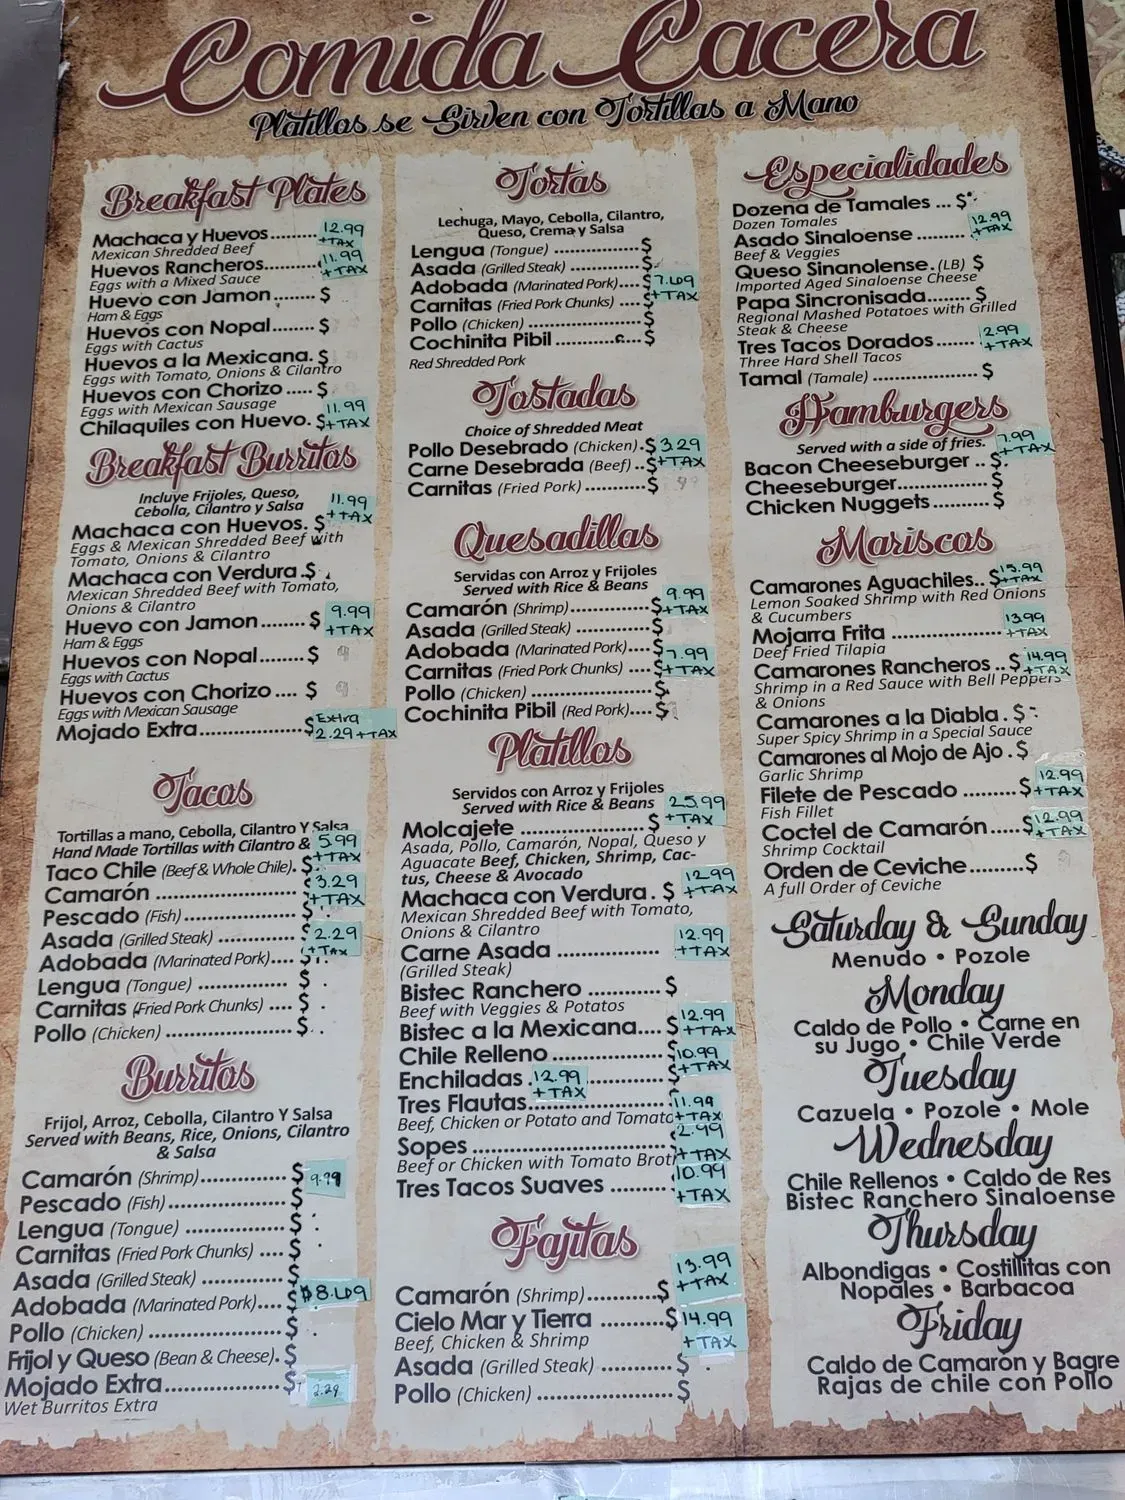 Comida Cacera
Platillos se Sirven con Tortillas a Mano
Breakfast Plates
Machaca y Huevos......... 12.99 +TAX
Mexican Shredded Beef
Huevos Rancheros......... 11.99 +TAX
Eggs with a Mixed Sauce
Huevo con Jamon....... $
Ham & Eggs
Huevos con Nopal........ $
Eggs with Cactus
Huevos a la Mexicana. $
Eggs with Tomato, Onions & Cilantro
Huevos con Chorizo .... $
Eggs with Mexican Sausage
Chilaquiles con Huevo. $ 11.99 +TAX
Breakfast Burritos
Incluye Frijoles, Queso,
Cebolla, Cilantro y Salsa
Machaca con Huevos. $ 11.99 +TAX
Eggs & Mexican Shredded Beef with
Tomato, Onions & Cilantro
Machaca con Verdura.$
Mexican Shredded Beef with Tomato,
Onions & Cilantro
Huevo con Jamon....... $ 9.99 +TAX
Ham & Eggs
Huevos con Nopal........ $
Eggs with Cactus
Huevos con Chorizo .... $
Eggs with Mexican Sausage
Mojado Extra.................$ Extra 2.29 +TAX
Tacos
Tortillas a mano, Cebolla, Cilantro Y Salsa
Hand Made Tortillas with Cilantro &
Taco Chile (Beef & Whole Chile). $ 5.99 +TAX
Camarón ...................... $ 3.29 +TAX
Pescado (Fish) .................. $
Asada (Grilled Steak) .............. $ 2.29 +TAX
Adobada (Marinated Pork).... $
Lengua (Tongue) ................. $
Carnitas (Fried Pork Chunks) .... $
Pollo (Chicken) ....................... $
Burritos
Frijol, Arroz, Cebolla, Cilantro Y Salsa
Served with Beans, Rice, Onions, Cilantro
& Salsa
Camarón (Shrimp)............... $ 9.99
Pescado (Fish)..................... $
Lengua (Tongue) ................. $
Carnitas (Fried Pork Chunks) .... $
Asada (Grilled Steak) ................ $
Adobada (Marinated Pork).... $8.69
Pollo (Chicken) ....................... $
Frijol y Queso (Bean & Cheese). $
Mojado Extra.....................$ 2.29
Wet Burritos Extra
Tortas
Lechuga, Mayo, Cebolla, Cilantro,
Queso, Crema y Salsa
Lengua (Tongue) .................$
Asada (Grilled Steak) ..............$
Adobada (Marinated Pork)....$ 7.69 +TAX
Carnitas (Fried Pork Chunks) ....$
Pollo (Chicken) .......................$
Cochinita Pibil .................$
Red Shredded Pork
Tostadas
Choice of Shredded Meat
Pollo Desebrado (Chicken).$ 3.29 +TAX
Carne Desebrada (Beef) ..$
Carnitas (Fried Pork) ...........$
Quesadillas
Servidas con Arroz y Frijoles
Served with Rice & Beans
Camarón (Shrimp)...............$ 9.99 +TAX
Asada (Grilled Steak) ...............$
Adobada (Marinated Pork)....$ 7.99 +TAX
Carnitas (Fried Pork Chunks) ....$
Pollo (Chicken) .......................$
Cochinita Pibil (Red Pork)....$
Platillos
Servidos con Arroz y Frijoles
Served with Rice & Beans
Molcajete ...................... $ 25.99 +TAX
Asada, Pollo, Camarón, Nopal, Queso y
Aguacate Beef, Chicken, Shrimp, Cac-
tus, Cheese & Avocado
Machaca con Verdura. $ 12.99 +TAX
Mexican Shredded Beef with Tomato,
Onions & Cilantro
Carne Asada .................. 12.99 +TAX
(Grilled Steak)
Bistec Ranchero ............ $
Beef with Veggies & Potatos
Bistec a la Mexicana.... $ 12.99 +TAX
Chile Relleno .................... $ 10.99 +TAX
Enchiladas . 12.99 +TAX ............. $
Tres Flautas........................ 11.99 +TAX
Beef, Chicken or Potato and Tomato
Sopes ............................... $ 2.99 +TAX
Beef or Chicken with Tomato Broth
Tres Tacos Suaves ......... 10.99 +TAX
Fajitas
Camarón (Shrimp)................$ 13.99 +TAX
Cielo Mar y Tierra ...........$ 14.99 +TAX
Beef, Chicken & Shrimp
Asada (Grilled Steak) ..............$
Pollo (Chicken) .......................$
Especialidades
Dozena de Tamales ... $
Dozen Tomales
Asado Sinaloense ......... 12.99 +TAX
Beef & Veggies
Queso Sinanolense. (LB) $
Imported Aged Sinaloense Cheese
Papa Sincronisada........ $
Regional Mashed Potatoes with Grilled
Steak & Cheese
Tres Tacos Dorados....... 2.99 +TAX
Three Hard Shell Tacos
Tamal (Tamale) .................... $
Hamburgers
Served with a side of fries.
Bacon Cheeseburger .. $. 7.99 +TAX
Cheeseburger................ $
Chicken Nuggets........... $
Mariscos
Camarones Aguachiles.. $ 15.99 +TAX
Lemon Soaked Shrimp with Red Onions
& Cucumbers
Mojarra Frita ..................... 13.99 +TAX
Deef Fried Tilapia
Camarones Rancheros .. $ 14.99 +TAX
Shrimp in a Red Sauce with Bell Peppers
& Onions
Camarones a la Diabla . $
Super Spicy Shrimp in a Special Sauce
Camarones al Mojo de Ajo . $
Garlic Shrimp
Filete de Pescado .......... $ 12.99 +TAX
Fish Fillet
Coctel de Camarón..... $ 12.99 +TAX
Shrimp Cocktail
Orden de Ceviche..........$
A full Order of Ceviche
Saturday & Sunday
Menudo • Pozole
Monday
Caldo de Pollo • Carne en
su Jugo • Chile Verde
Tuesday
Cazuela • Pozole • Mole
Wednesday
Chile Rellenos • Caldo de Res
Bistec Ranchero Sinaloense
Thursday
Albondigas • Costillitas con
Nopales • Barbacoa
Friday
Caldo de Camarón y Bagre
Rajas de chile con Pollo